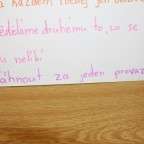 každém
dělame druhému to, co se
u nelíbí
áhnout za jeden provaz